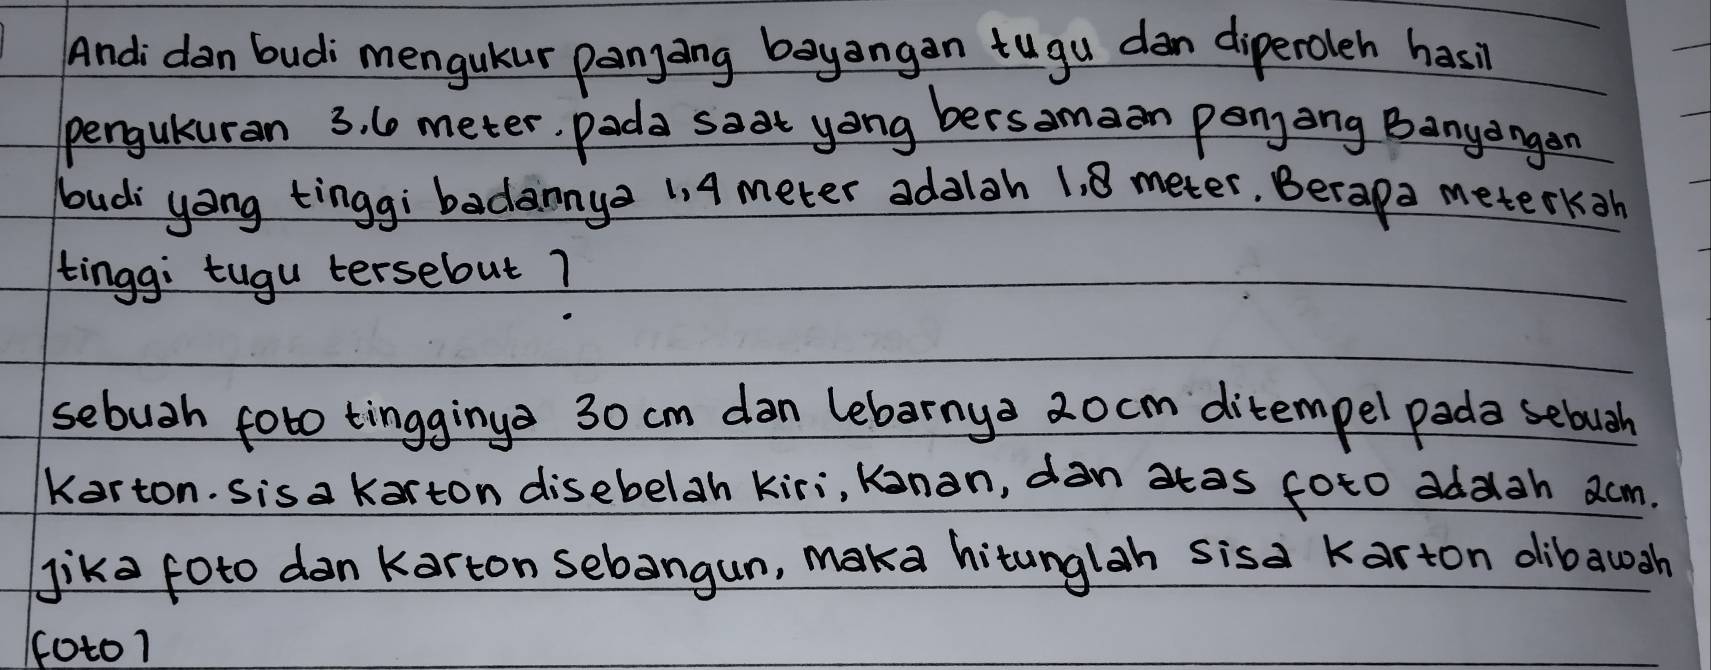 Andi dan budi mengukur panjang bayangan tugu dan diperoleh hasil
pengukuran 3,6 meter. pada saat yang bersamaan panjang Banyangan
budi yang tinggi badannya 1,4 meter adalah 1,8 meter. Berapa meterkah
tinggi tugu tersebut?
sebuah foto tingginya 30 cm dan lebarnya 20cm ditempel pada sebuah
karton. sisa karton disebelah kiri, kanan, dan atas foto adalah 2cm.
jika foto dan karton sebangun, maka hitunglah sisa karton dibawah
foto?